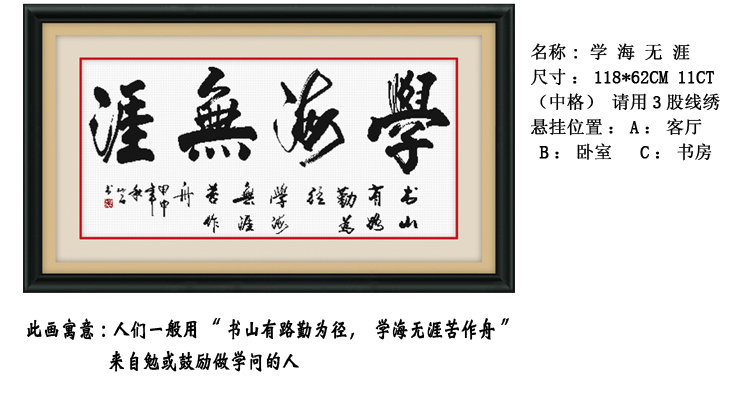 學海無涯
书山
有路
勤為
徑
學海
無涯
苦作
舟
甲申
年秋
名称：学海无涯
尺寸：118*62CM 11CT
（中格） 请用3股线绣
悬挂位置：A：客厅
B：卧室 C：书房
此画寓意：人们一般用“书山有路勤为径， 学海无涯苦作舟”
来自勉或鼓励做学问的人